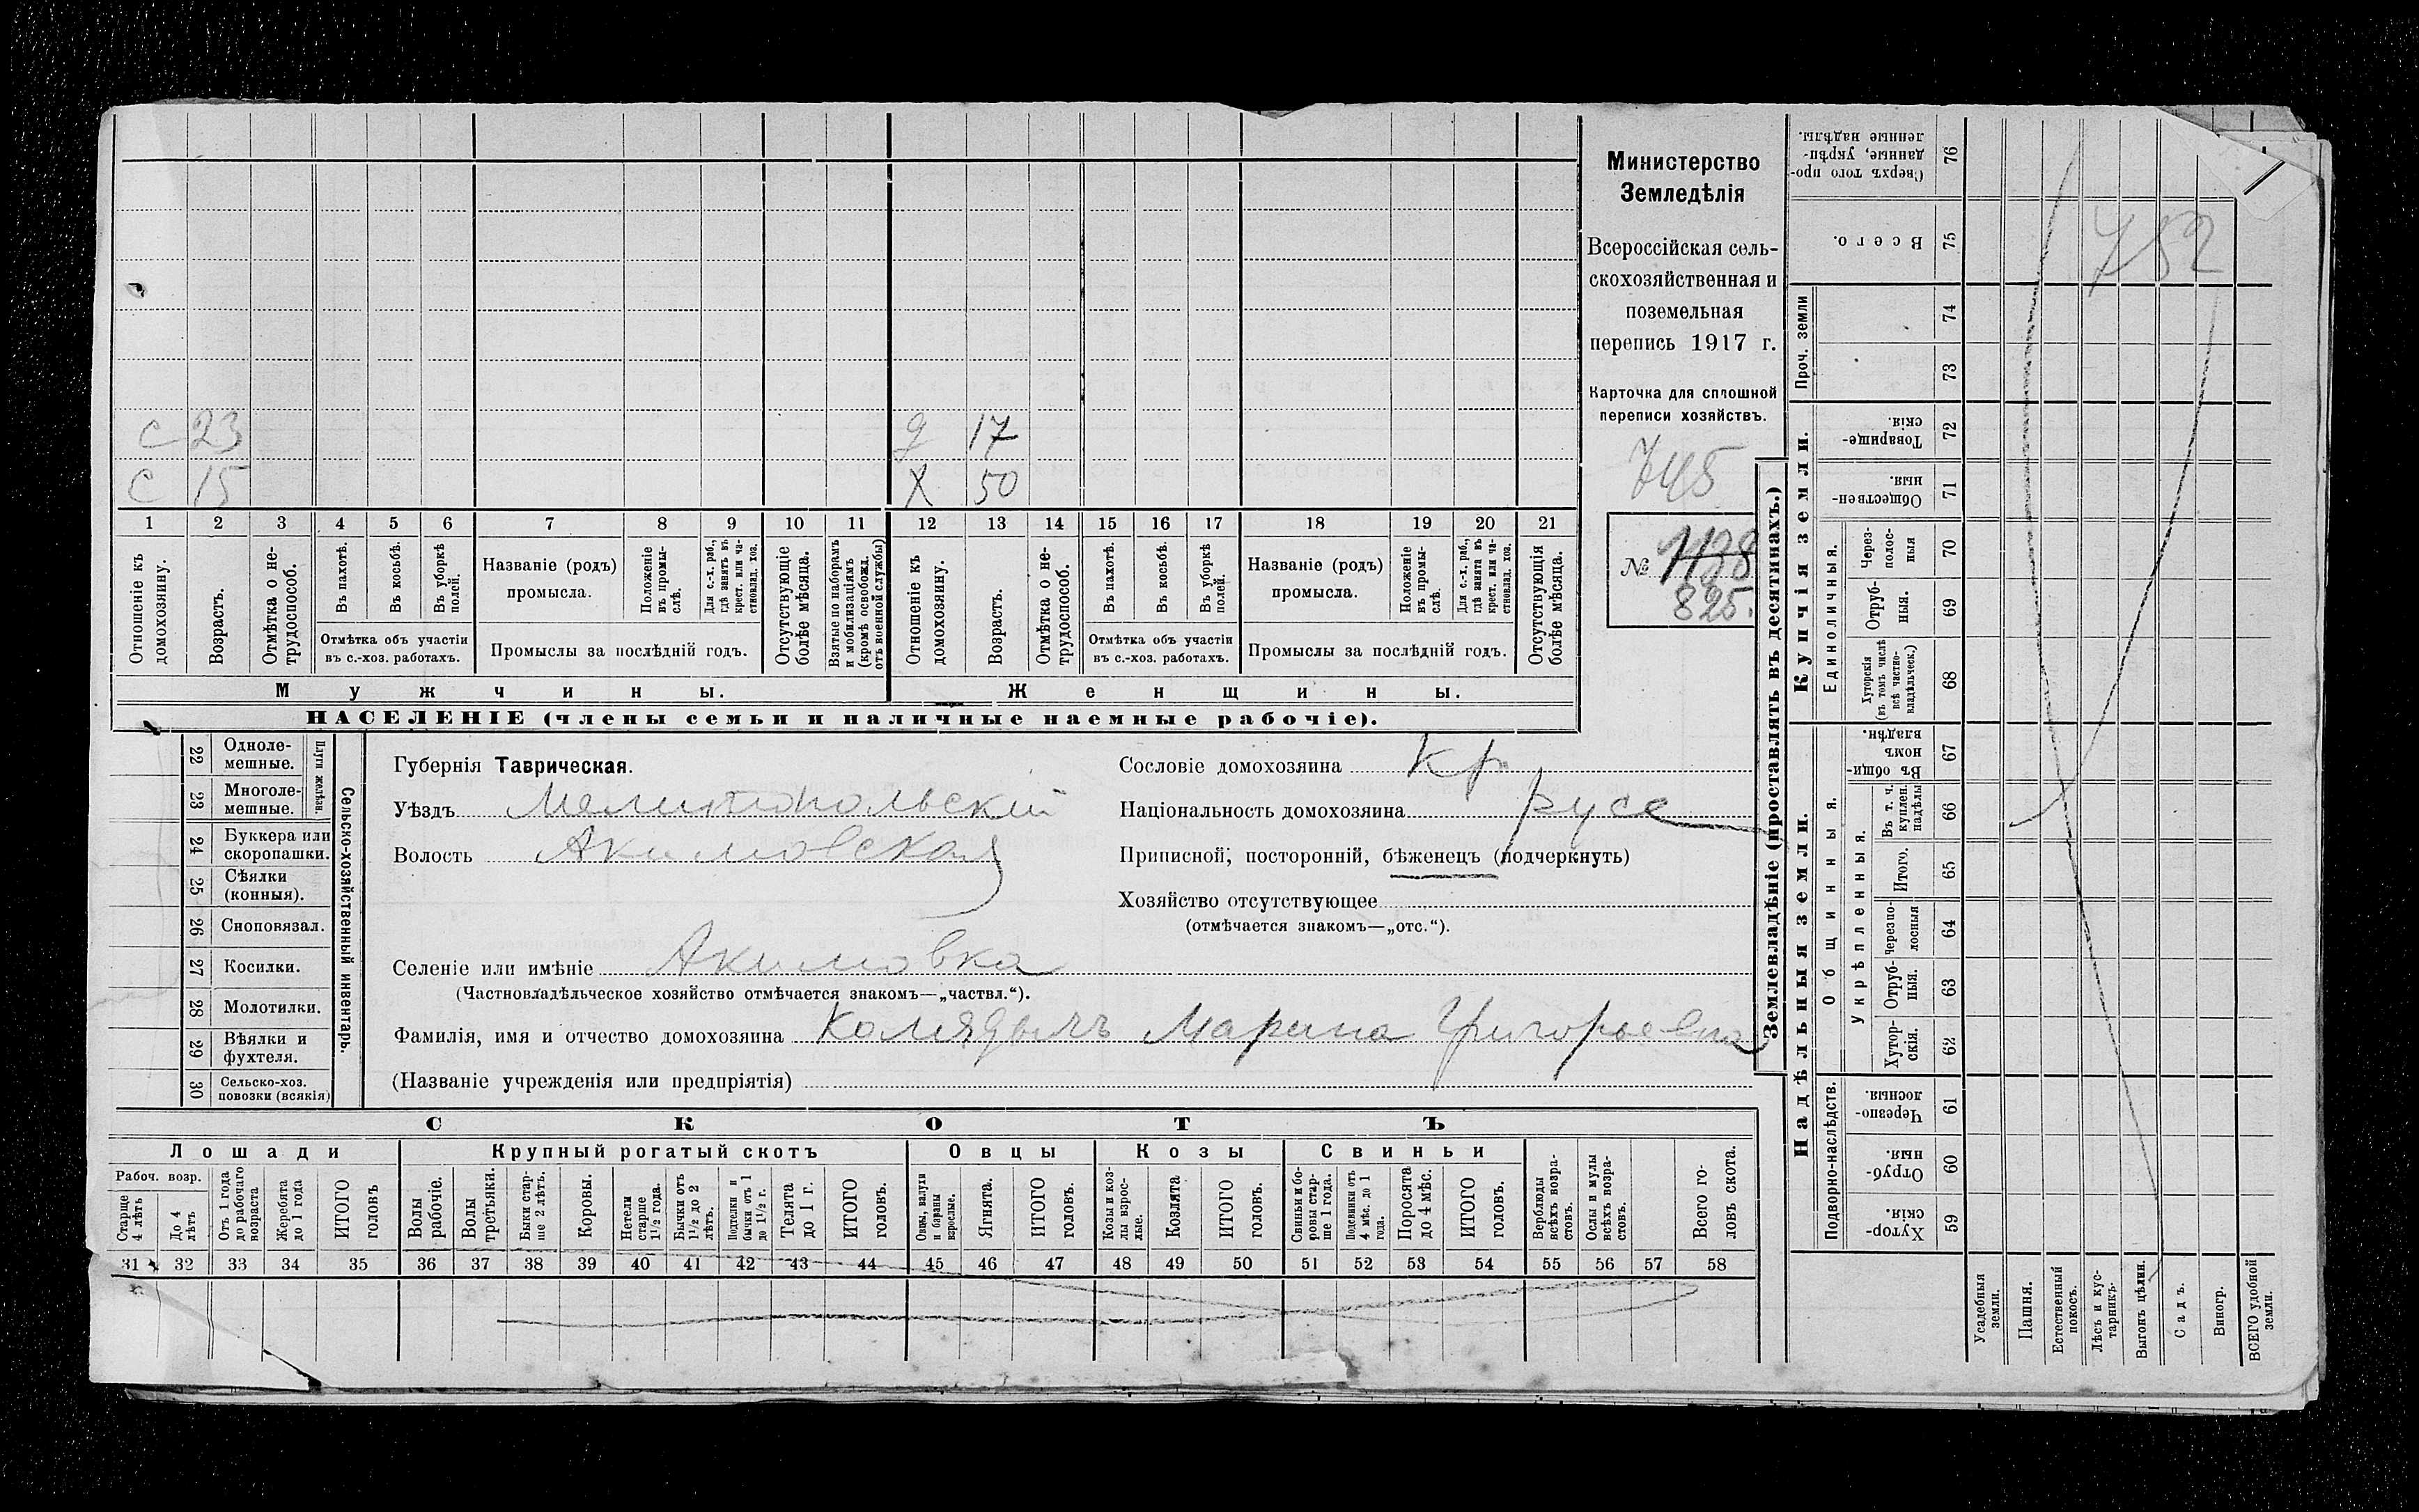 Министерство
Земледѣлія
Всероссійская сель-
скохозяйственная и
поземельная
перепись 1917 г.
Карточка для сплошной
переписи хозяйствъ.
745
№ 1138
825.
752
с 23
с 15
д 17
х 50
1 2 3 4 5 6 7 8 9 10 11 12 13 14 15 16 17 18 19 20 21
Отношеніе къ домохозяину.
Возрастъ.
Отмѣтка о не-трудоспособ.
Въ пахотѣ.
Въ косьбѣ.
Въ уборкѣ полей.
Отмѣтка объ участіи
въ с.-хоз. работахъ.
Названіе (родъ)
промысла.
Положеніе въ промы-слѣ.
Для с.-х. раб., гдѣ занятъ въ крест. или ча-стновлад. хоз.
Промыслы за послѣдній годъ.
Отсутствующіе болѣе мѣсяца.
Взятые по наборамъ и мобилизаціямъ (кромѣ освобожд. отъ военной службы)
Отношеніе къ домохозяину.
Возрастъ.
Отмѣтка о не-трудоспособ.
Въ пахотѣ.
Въ косьбѣ.
Въ уборкѣ полей.
Отмѣтка объ участіи
въ с.-хоз. работахъ.
Названіе (родъ)
промысла.
Положеніе въ промы-слѣ.
Для с.-х. раб., гдѣ занята въ крест. или ча-стновлад. хоз.
Промыслы за послѣдній годъ.
Отсутствующія болѣе мѣсяца.
Мужчины.
Женщины.
НАСЕЛЕНІЕ (члены семьи и наличные наемные рабочіе).
22 Одноле-
мешные.
23 Многоле-
мешные.
Плуги желѣзн.
24 Буккера или
скоропашки.
25 Сѣялки
(конныя).
26 Сноповязал.
27 Косилки.
28 Молотилки.
29 Вѣялки и
фухтеля.
30 Сельско-хоз.
повозки (всякія)
Сельско-хозяйственный инвентарь.
Губернія Таврическая.
Уѣздъ Мелитопольскій
Волость Акимовская
Селеніе или имѣніе Акимовка
(Частновладѣльческое хозяйство отмѣчается знакомъ—„частвл.“).
Фамилія, имя и отчество домохозяина Марина Григорьевна
(Названіе учрежденія или предпріятія)
Сословіе домохозяина Кр
Національность домохозяина русс
Приписной, посторонній, бѣженецъ (подчеркнуть)
Хозяйство отсутствующее
(отмѣчается знакомъ—„отс.“).
СКОТЪ
Лошади
Рабоч. возр.
Старше 4 лѣтъ
До 4 лѣтъ
Отъ 1 года до рабочаго возраста
Жеребята до 1 года
ИТОГО головъ
Крупный рогатый скотъ
Волы рабочіе.
Волы третьяки.
Быки стар-ше 2 лѣтъ.
Коровы.
Нетели старше 1½ года.
Бычки отъ 1½ до 2 лѣтъ.
Подтелки и бычки отъ 1 до 1½ г.
Телята до 1 г.
ИТОГО головъ.
Овцы
Овцы, валухи и бараны взрослые.
Ягнята.
ИТОГО головъ.
Козы
Козы и коз-лы взрос-лые.
Козлята
ИТОГО головъ.
Свиньи
Свиньи и бо-ровы стар-ше 1 года.
Подсвинки отъ 4 мѣс. до 1 года.
Поросята до 4 мѣс.
ИТОГО головъ.
Верблюды всѣхъ возра-стовъ.
Ослы и мулы всѣхъ возра-стовъ.
Всего го-ловъ скота.
31 32 33 34 35 36 37 38 39 40 41 42 43 44 45 46 47 48 49 50 51 52 53 54 55 56 57 58
Землевладѣніе (проставлять въ десятинахъ.)
Купчія земли.
Надѣльныя земли.
Сверхъ того про-данные, укрѣп-ленные надѣлы. 76
Всего. 75
Проч. земли
74
73
Товарище-скія. 72
Обществен-ныя. 71
Единоличныя.
Через-полос-ныя 70
Отруб-ныя. 69
Хуторскія (въ томъ числѣ всѣ частно-владѣльческ.) 68
Общинныя.
Въ общин-номъ владѣн. 67
Укрѣпленныя.
Въ т. ч. куплен. надѣлы 66
Итого. 65
Черезпо-лосныя 64
Отруб-ныя. 63
Хутор-скія. 62
Подворно-наслѣдств.
Черезпо-лосныя. 61
Отруб-ныя. 60
Хутор-скія. 59
Усадебныя земли.
Пашня.
Естественный покосъ.
Лѣсъ и кус-тарникъ.
Выгонъ цѣлин.
Садъ.
Виногр.
ВСЕГО удобной земли.